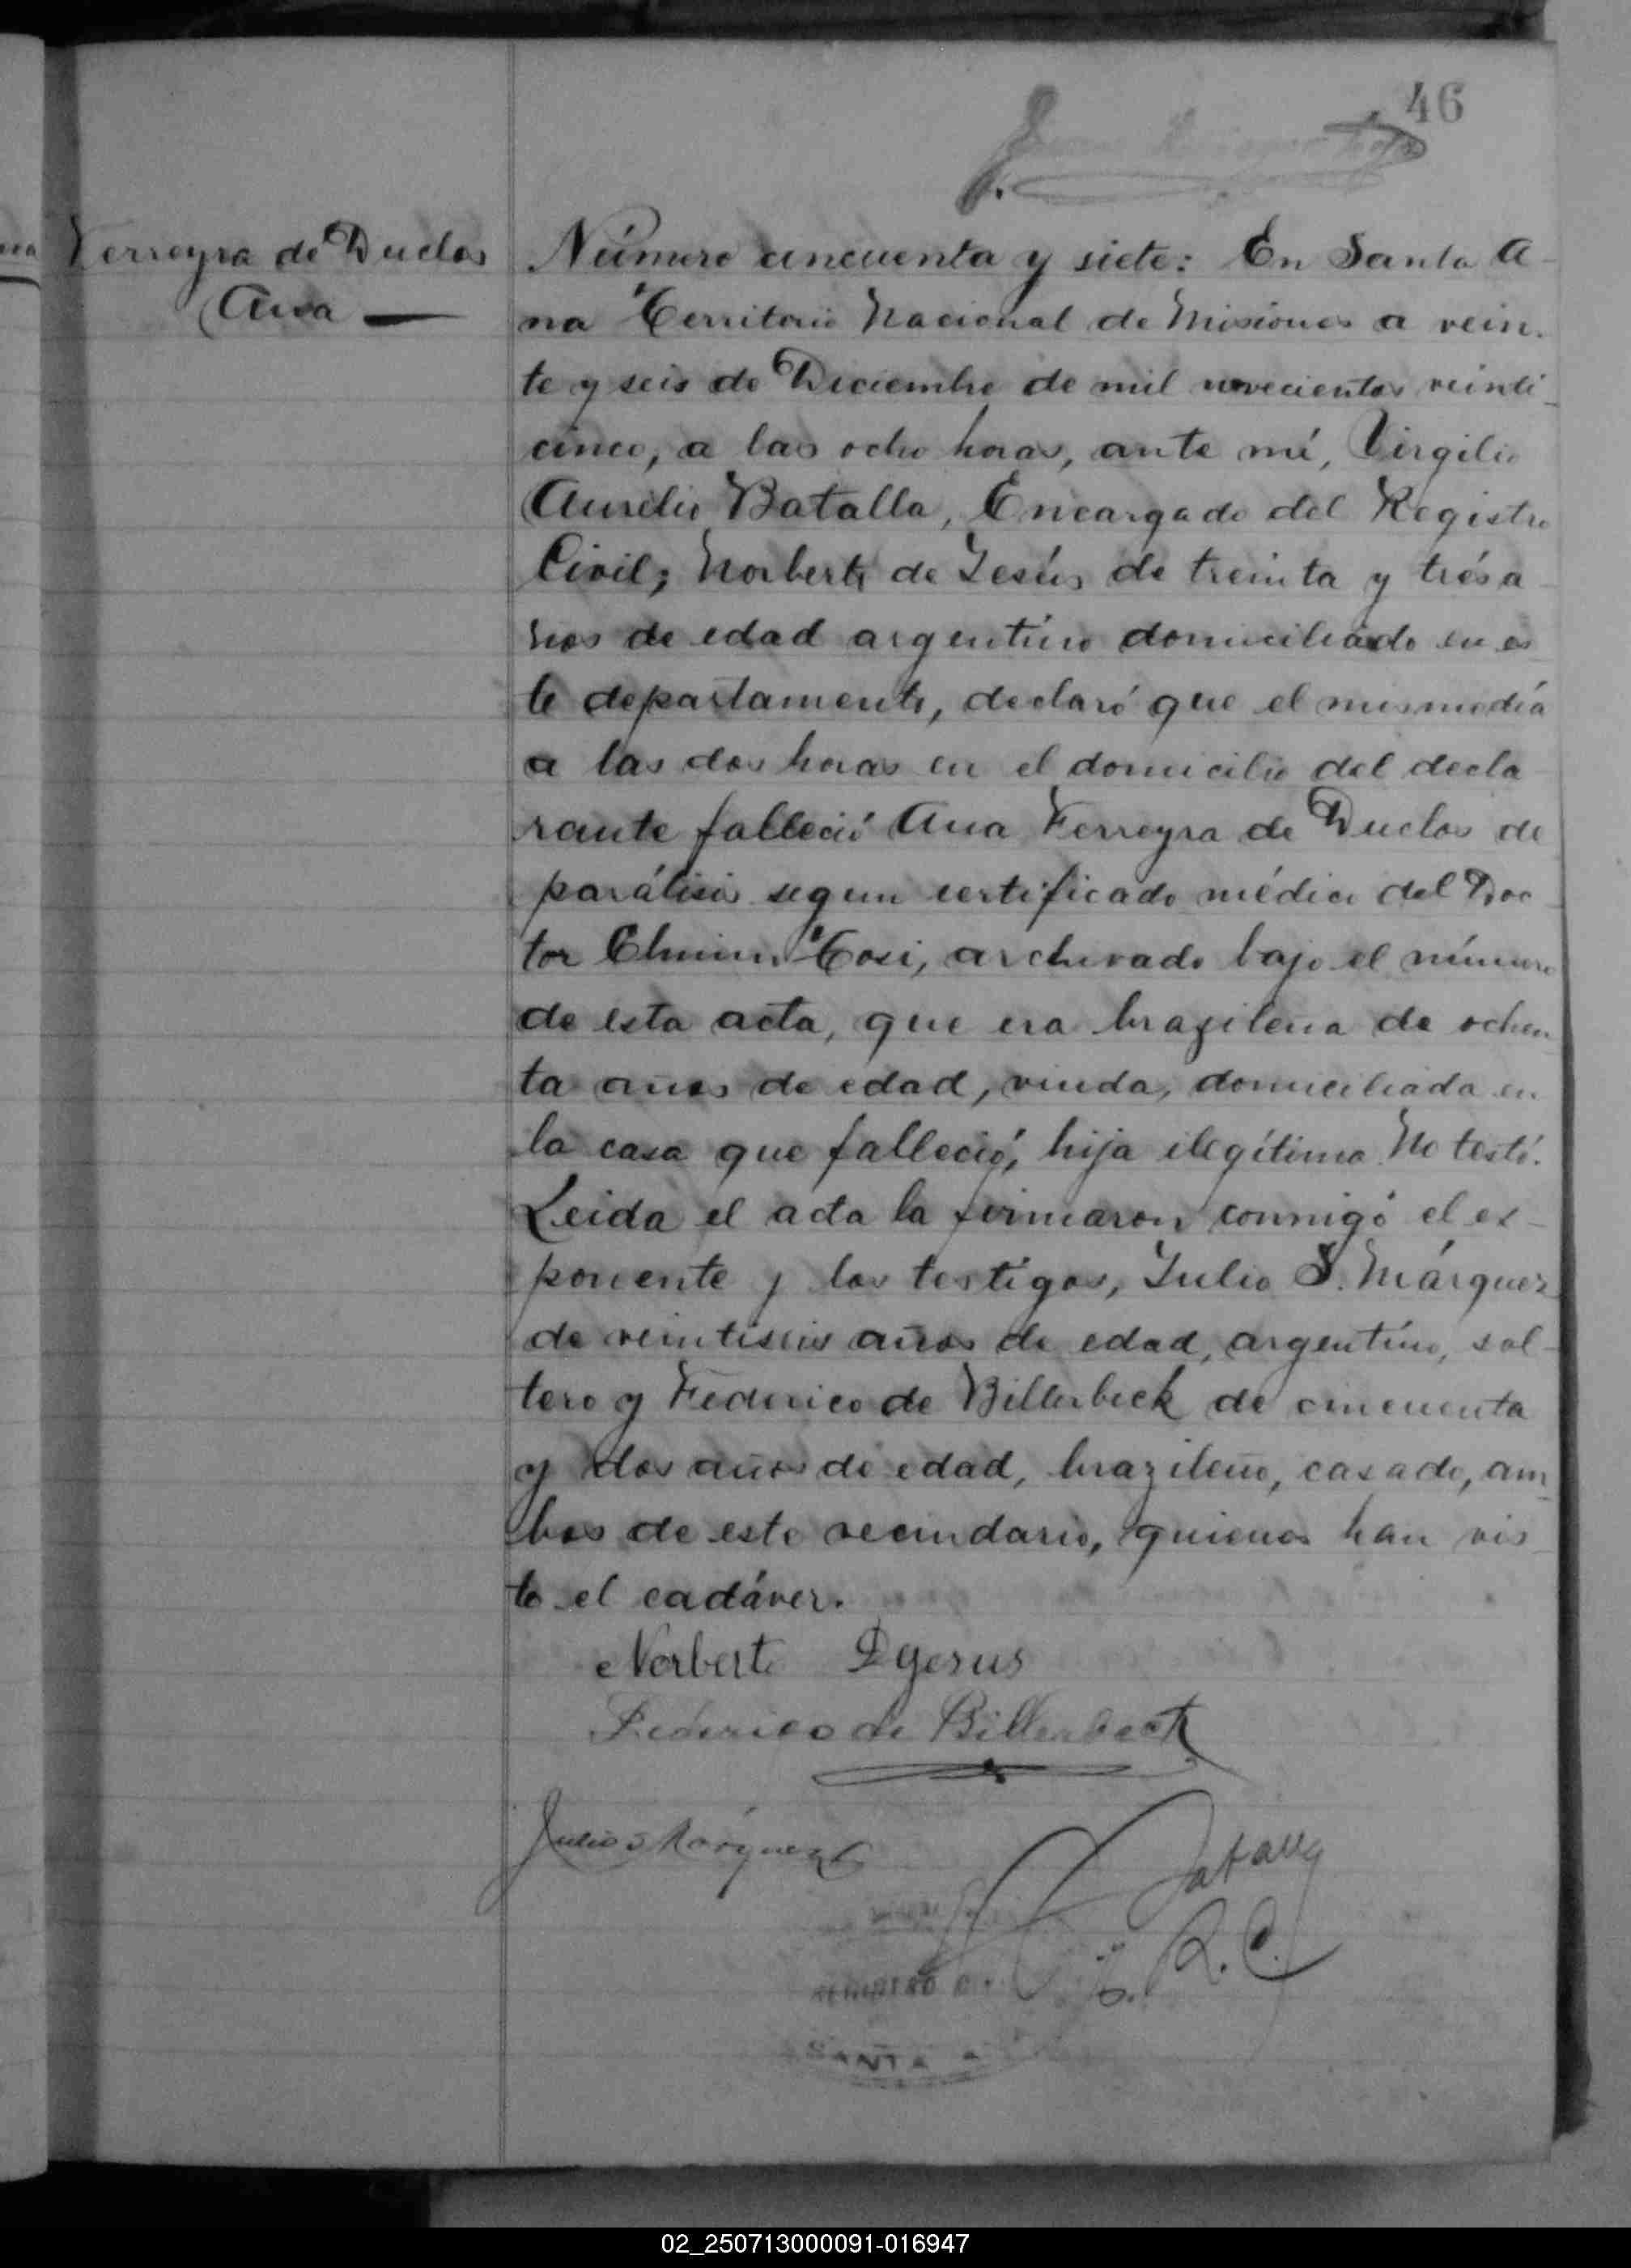 46
Ferreyra de Duclos
Ana
Número cincuenta y siete: En Santa A-
na Territorio Nacional de Misiones a vein-
te y seis de Diciembre de mil novecientos veinti-
cinco, a las ocho horas, ante mí, Virgilio
Aurelio Batalla, Encargado del Registro
Civil; Norberto de Jesús de treinta y trés a-
ños de edad argentino domiciliado en es-
te departamento, declaró que el mismo día
a las dos horas en el domicilio del decla-
rante falleció Ana Ferreyra de Duclos de
parálisis segun certificado médico del Doc-
tor Tosi, archivado bajo el número
de esta acta, que era brazileña de ochen-
ta años de edad, viuda, domiciliada en
la casa que falleció, hija ilegítima. No testó.
Leida el acta la firmaron conmigo el ex-
ponente y los testigos, Julio S. Márquez
de veintiseis años de edad, argentino, sol-
tero y Federico de Billerbeck de cincuenta
y dos años de edad, brazileño, casado, am-
bos de este vecindario, quienes han vis-
to el cadáver.
Norberto Dyesus
Federico de Billerbeck
Julio S Márquez
Batalla
E. R. C.
REGISTRO C
SANTA A
02_250713000091-016947